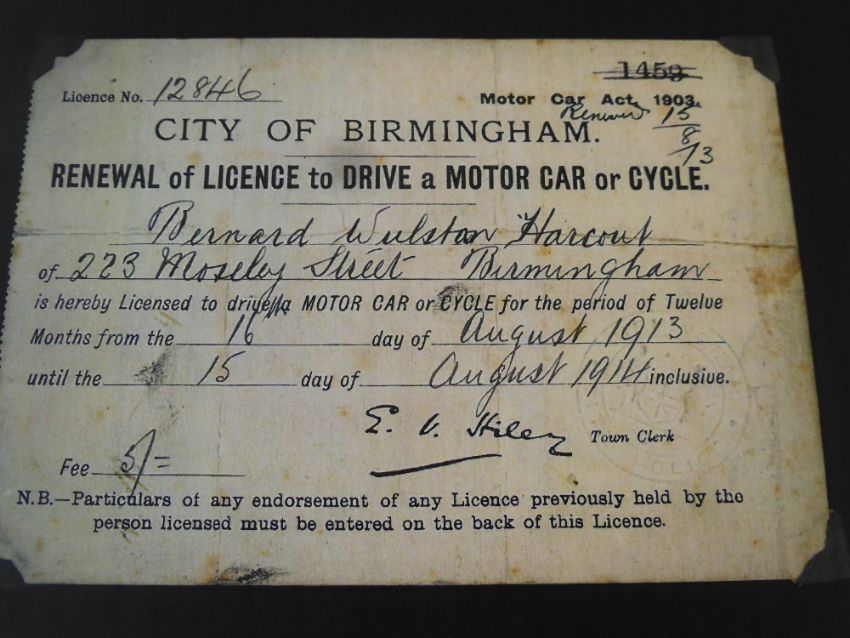 1459
Licence No. 12846 Motor Car Act, 1903.
Renewed 15/8/13
CITY OF BIRMINGHAM.
RENEWAL of LICENCE to DRIVE a MOTOR CAR or CYCLE.
Bernard Wulstan Harcourt
of 223 Moseley Street Birmingham
is hereby Licensed to drive a MOTOR CAR or CYCLE for the period of Twelve
Months from the 16th day of August 1913
until the 15 day of August 1914 inclusive.
E. V. Hiley Town Clerk
Fee 5/=
N.B.—Particulars of any endorsement of any Licence previously held by the
person licensed must be entered on the back of this Licence.